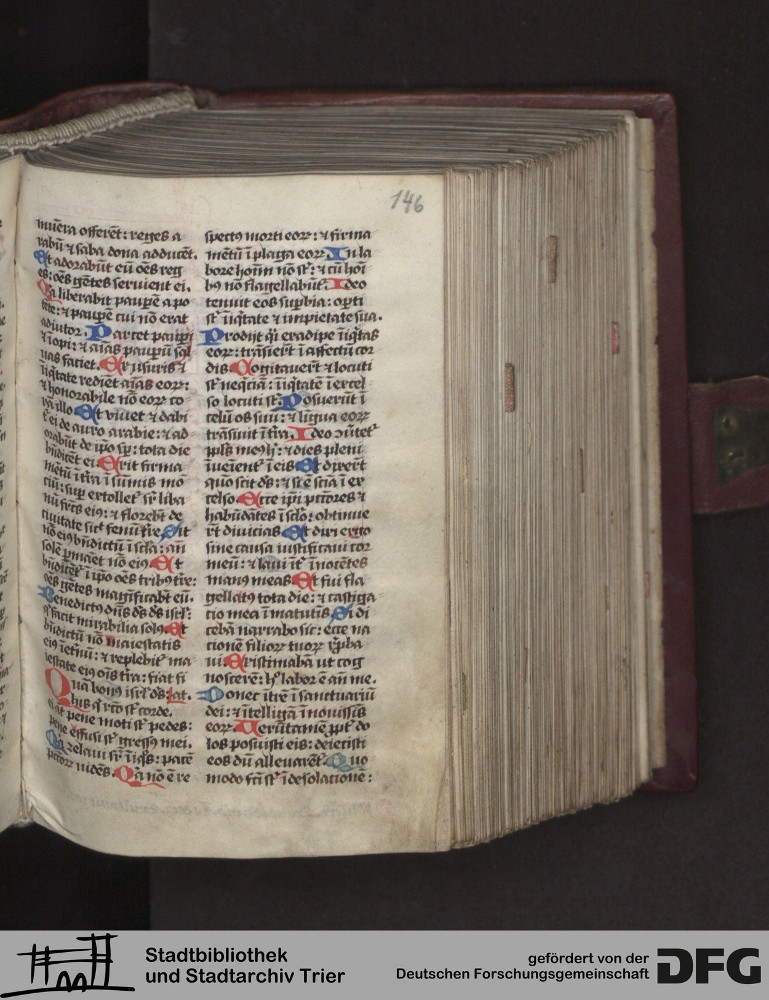 146
munera offerēt: reges a
rabū ⁊ saba dona adducēt.
Et adorabūt eū oēs reg
es: oēs gētes seruient ei.
Qa liberabit paupē a po
tēte: ⁊ paupē cui nō erat
adiutor. Parcet paupi
⁊ īopi: ⁊ aīas paupū sal
uas faciet. Ex usuris ⁊
īiqtate rediēt aīas eoꝝ:
⁊ honorabile nō eoꝝ co
rā illo. Et viuet ⁊ dabi
t ei de auro arabie: ⁊ ad
orabūt de ipo sp: tota die
bñdicēt ei. Erit firma
mētū ī tra ī sūmis mō
tiū: sup extollet sr liba
nū fruct eiꝯ: ⁊ florebūt de
ciuitate sict fenū tre. Sit
nō eiꝯ bñdictū ī scla: añ
solē pmaet nō eiꝯ. Et
bñdicēt ī ipo oēs tribꝯ tre:
oēs gētes magificabūt eū.
Benedictꝯ dñs ds ds isrl:
q facit mirabilia solꝯ. Et
bñdictū nō maiestatis
eiꝯ ī etnū: ⁊ replebit ma
iestate eiꝯ oīs tra: fiat fi
at.
Qua bonꝯ isrl ds:
his q rcto st corde.
pene moti st pedes:
pene effusi st gressꝯ mei.
Qa zelaui sr īiqs: pacē
pctoꝝ uidēs. Qa nō ē re
spectꝯ morti eoꝝ: ⁊ firma
mētū ī plaga eoꝝ. In la
bore hoīm nō st: ⁊ cū hoī
bꝯ nō flagellabūt. Ideo
tenuit eos supbia: opti
st īiqtate ⁊ impietate sua.
Prodijt qi ex adipe īiqtas
eoꝝ: trāsiert ī affectū cor
dis. Cogitauert ⁊ locuti
st neqciā: īiqtate ī excel
so locuti st. Posuerūt ī
celū os suū: ⁊ ligua eoꝝ
trāsiuit ī tra. Ideo ꝯūtet
ppls meꝯ h: ⁊ dies pleni
īueniēt ī eis. Et dixert
quō scit ds: ⁊ si ē sciā ī ex
celso. Ecce ipi pctores ⁊
habūdātes ī sclo: obtinue
rt diuicias. Et dixi ergo
sine causa iustificaui cor
meū: ⁊ laui īt īnocētes
manꝯ meas. Et fui fla
gellatꝯ tota die: ⁊ castiga
tio mea ī matutīs. Si di
cebā narrabo sic: ecce na
tionē filioꝝ tuoꝝ rpba
ui. Existimabā ut cog
noscerē: h labor ē añ me.
Donec ītrē ī sanctuariū
dei: ⁊ ītelligā ī nouissīs
eoꝝ. Uerūtamē ppt do
los posuisti eis: deiecisti
eos dū alleuarēt. Quo
modo fcti st ī desolationē:
Stadtbibliothek
und Stadtarchiv Trier
gefördert von der
Deutschen Forschungsgemeinschaft
DFG